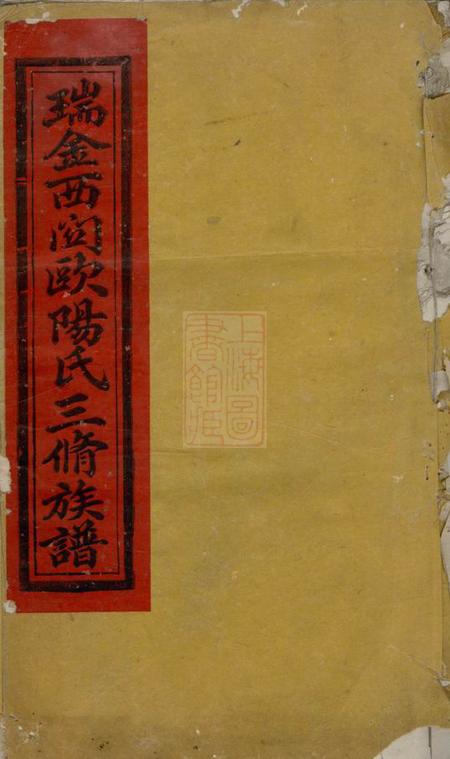 瑞金西関歐陽氏三脩族譜
上海圖
書館藏